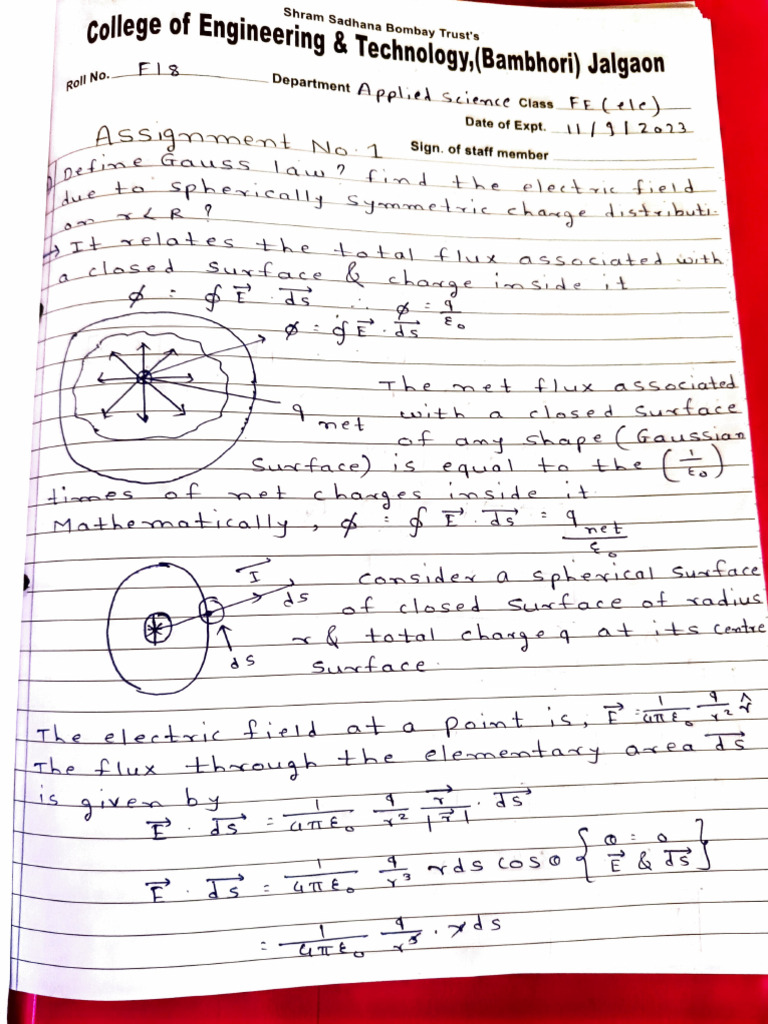 Shram Sadhana Bombay Trust's
College of Engineering & Technology,(Bambhori) Jalgaon
Roll No. F18 Department Applied science Class FE (ele)
Date of Expt. 11/9/2023
Assignment No. 1 Sign. of staff member
Define Gauss law? find the electric field
due to spherically symmetric charge distributi-
on r<R ?
→ It relates the total flux associated with
a closed surface & charge inside it
ϕ = ∮ E⃗ . ds⃗ ∴ ϕ = q/ε₀
ϕ = ∮ E⃗ . ds⃗
The net flux associated
q net with a closed surface
of any shape (Gaussian
Surface) is equal to the (1/ε₀)
times of net charges inside it.
Mathematically, ϕ = ∮ E⃗ . ds⃗ = q net/ε₀
I⃗ consider a spherical surface
ds of closed surface of radius
r & total charge q at its centre
ds surface.
The electric field at a point is, E⃗ = 1/4πε₀ q/r² r̂
The flux through the elementary area ds⃗
is given by
E⃗ . ds⃗ = 1/4πε₀ q/r² r⃗/|r⃗| . ds⃗
E⃗ . ds⃗ = 1/4πε₀ q/r³ rds cosθ { θ = 0 E⃗ & ds⃗ }
= 1/4πε₀ q/r³ . rds